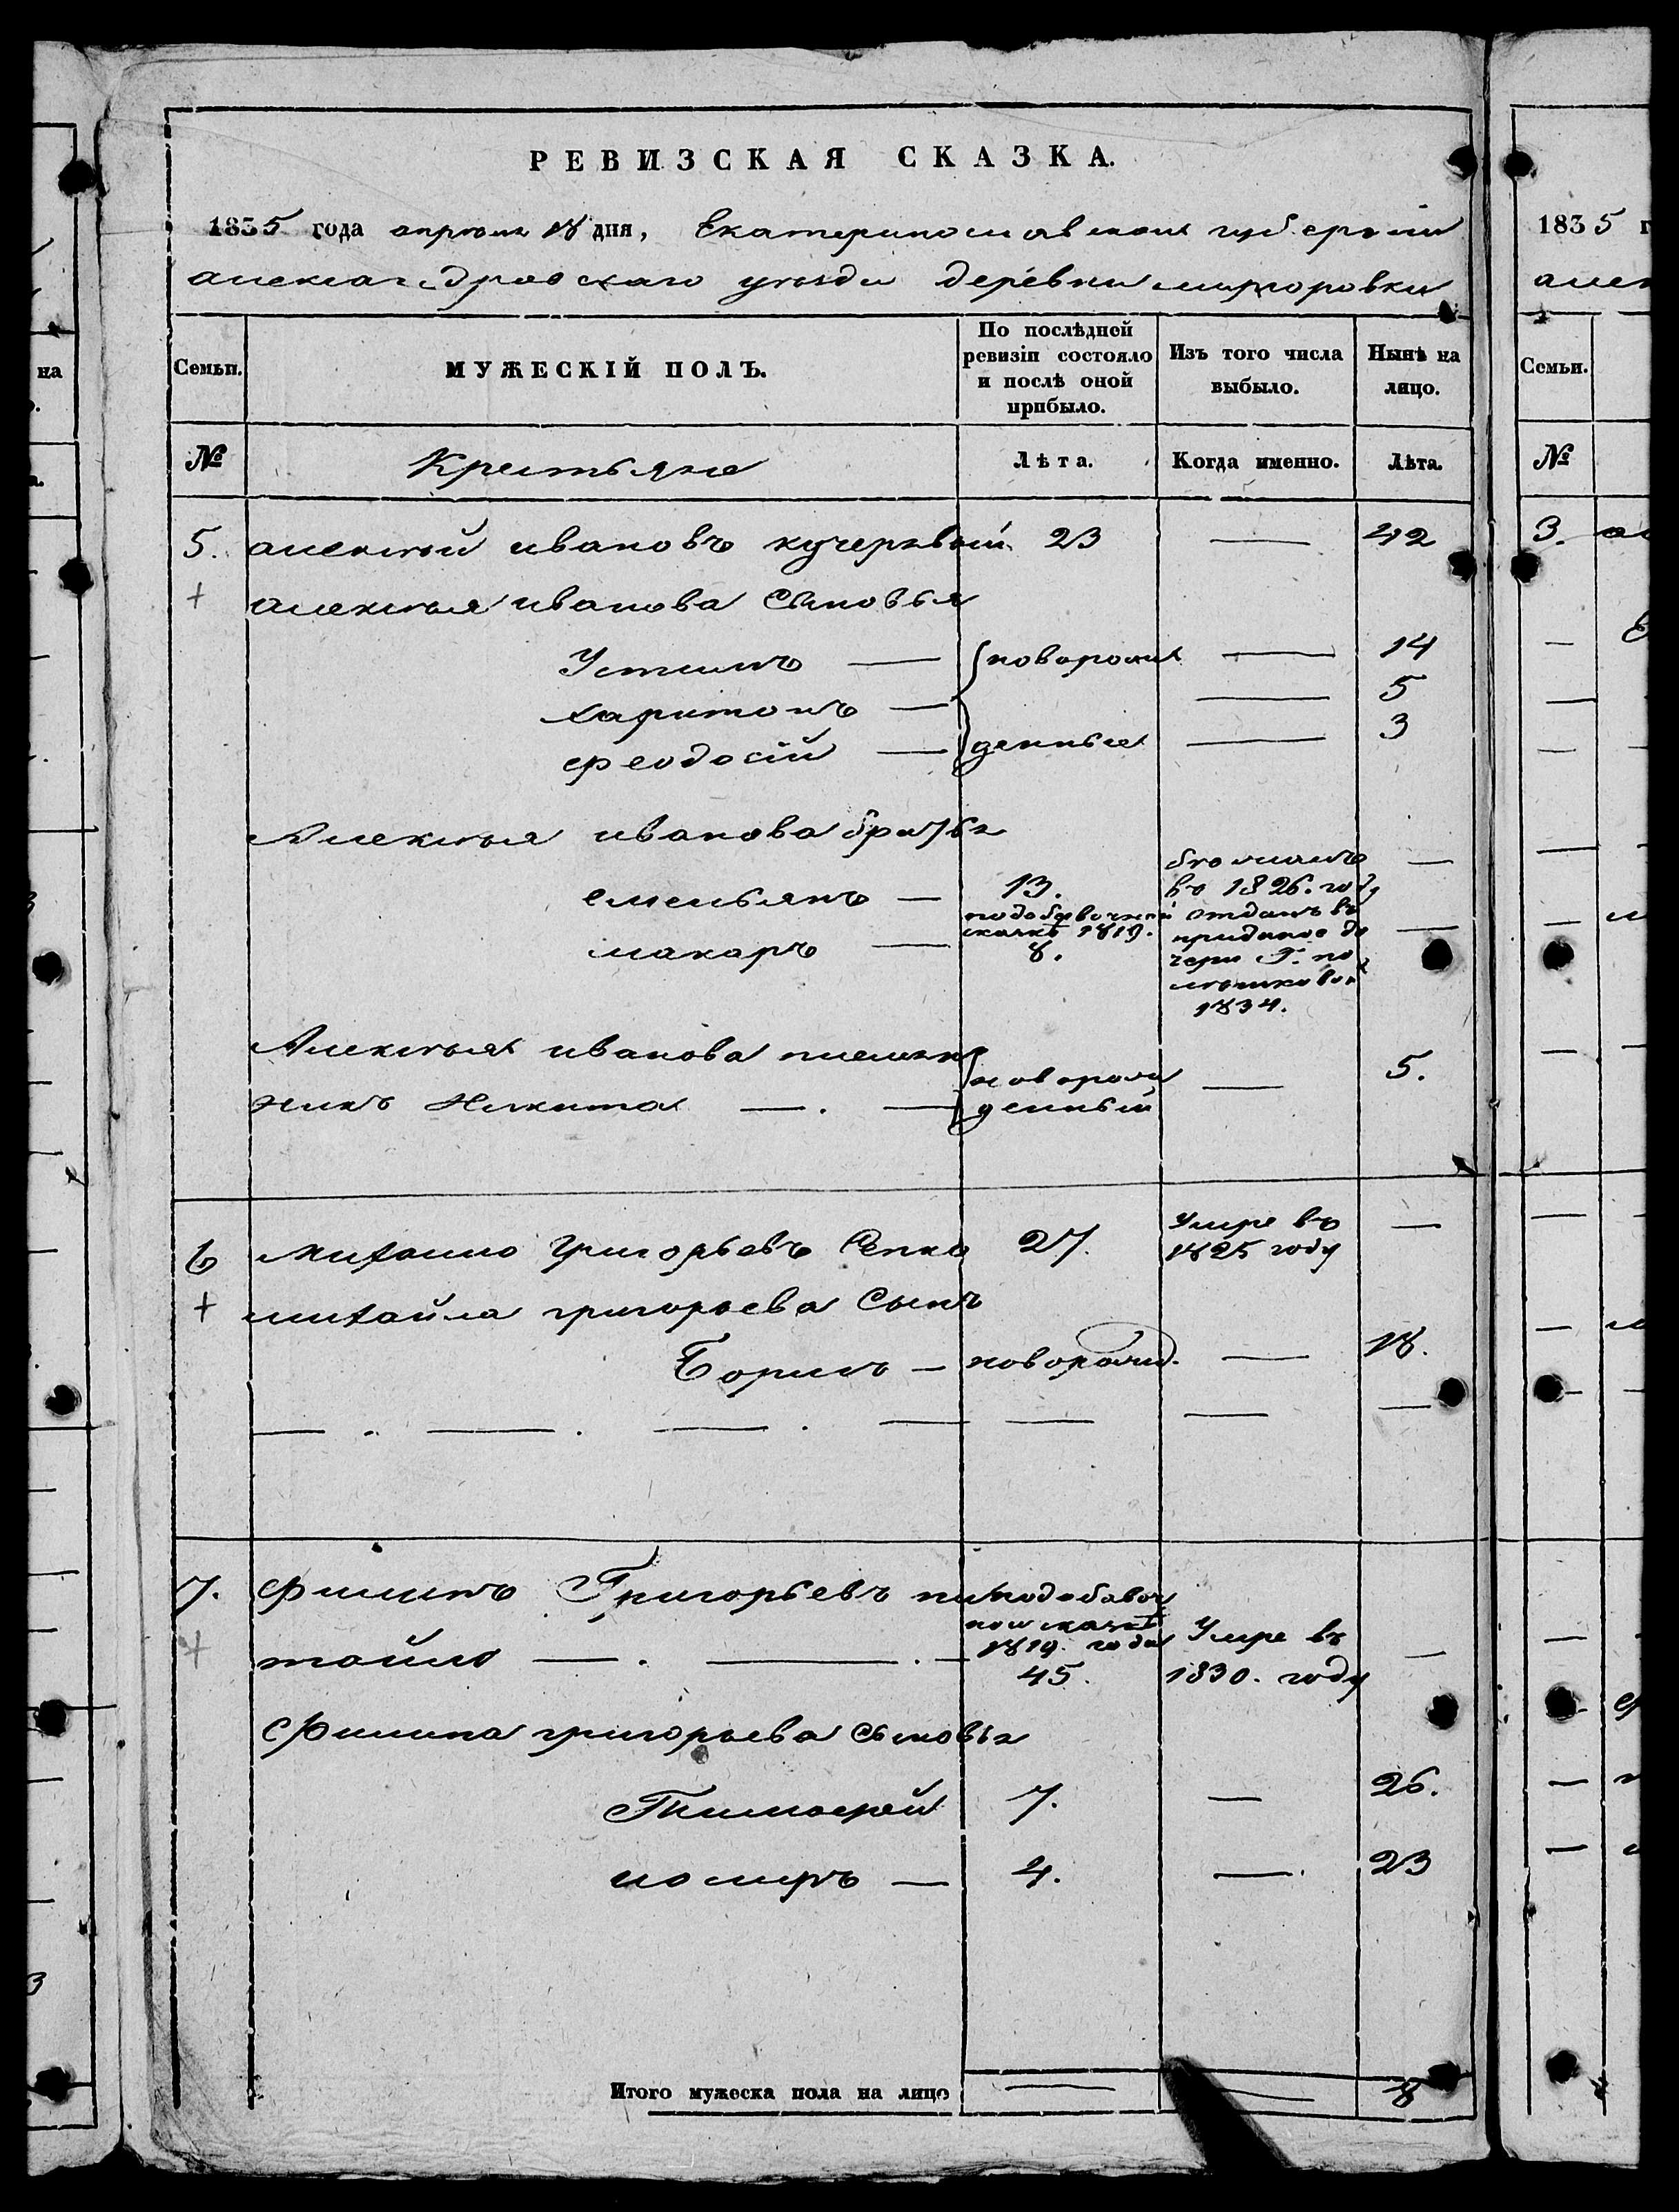 РЕВИЗСКАЯ СКАЗКА.
1835 года апреля 18 дня, Екатеринославской губернии
александровскаго уезда деревни миргоровки
Семьи.
МУЖЕСКІЙ ПОЛЪ.
По послѣдней ревизіи состояло и послѣ оной прибыло.
Изъ того числа выбыло.
Нынѣ на лицо.
№
Крестьяне
Лѣта.
Когда именно.
Лѣта.
5. алексѣй ивановъ кучерявый 23 — 42
алексѣя иванова сыновья
Устимъ — новорож — 14
харитонъ — — 5
феодосій — денные — 3
Алексѣя иванова братья
емельянъ — 13. бежалъ въ 1826. году —
макаръ — подобавочной сказкѣ 1819. 8. отданъ въ приданое дочери Г. 1834. —
Алексѣя иванова племян
никъ Никита — . — новорож денный — 5.
6 михайло григорьевъ 27. Умре въ 1825 году —
михайла григорьева сынъ
Борисъ — новорожд. — 18.
7. Филипъ Григорьевъ
подобавоч ной сказкѣ 1819. года 45. Умре въ 1830. году —
Филипа григорьева сыновья
Тимофей 7. — 26.
— 4. — 23
Итого мужеска пола на лицо — — 8
1835 г
Семьи.
№
3.
на